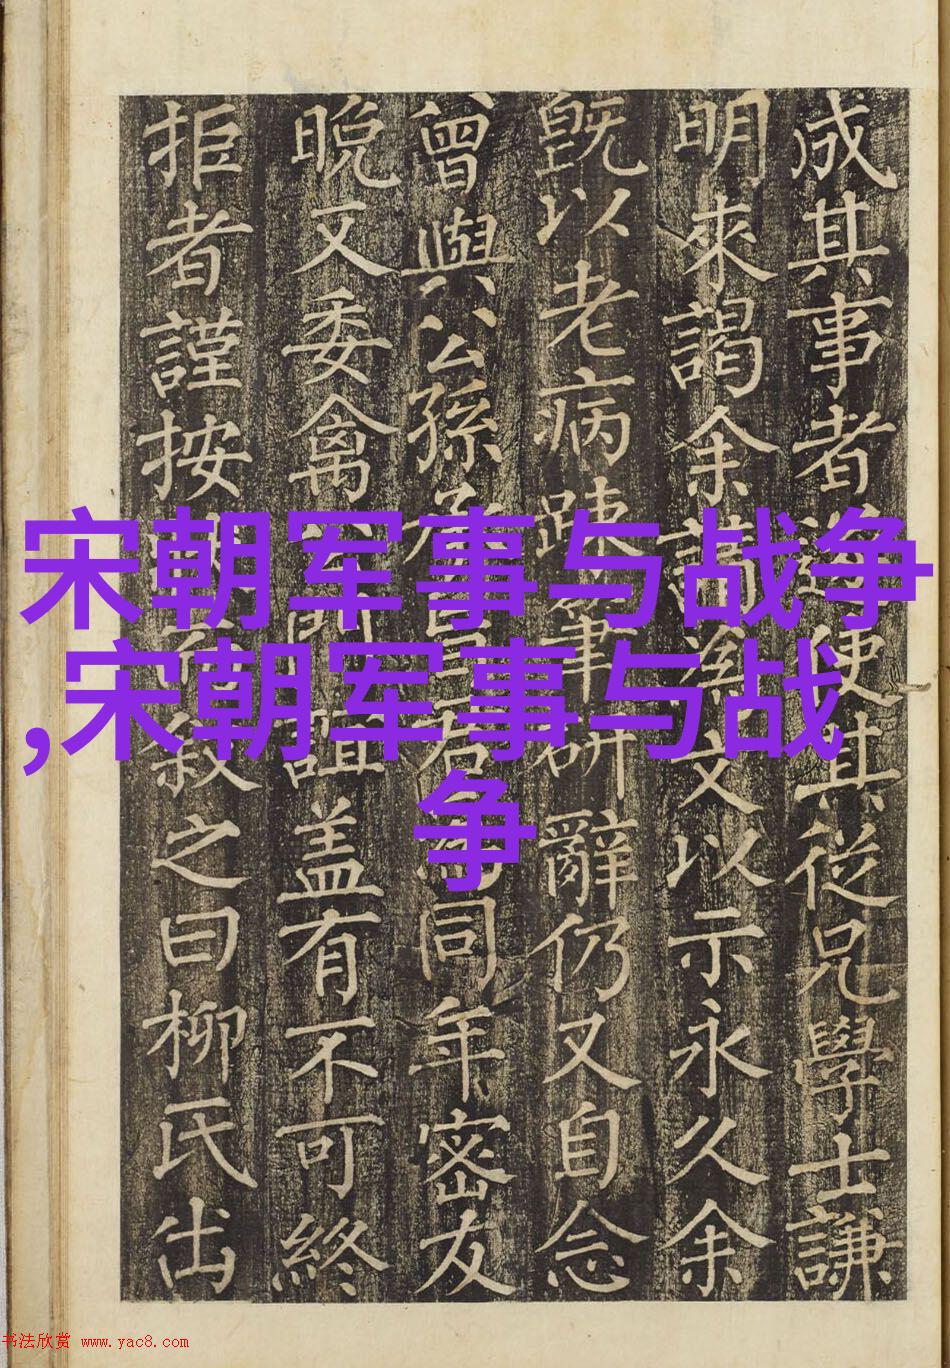 成其事者
使其從兄學士謙
明來謁余
文以示永久余
旣以老病
踈筆研辭仍又自念
曾與公孫
同年密友
晚又委禽
盖有不可終
拒者謹按
叙之曰柳氏出
宋朝军事与战争
,宋朝军事与战
争
书法欣赏 www.yac8.com